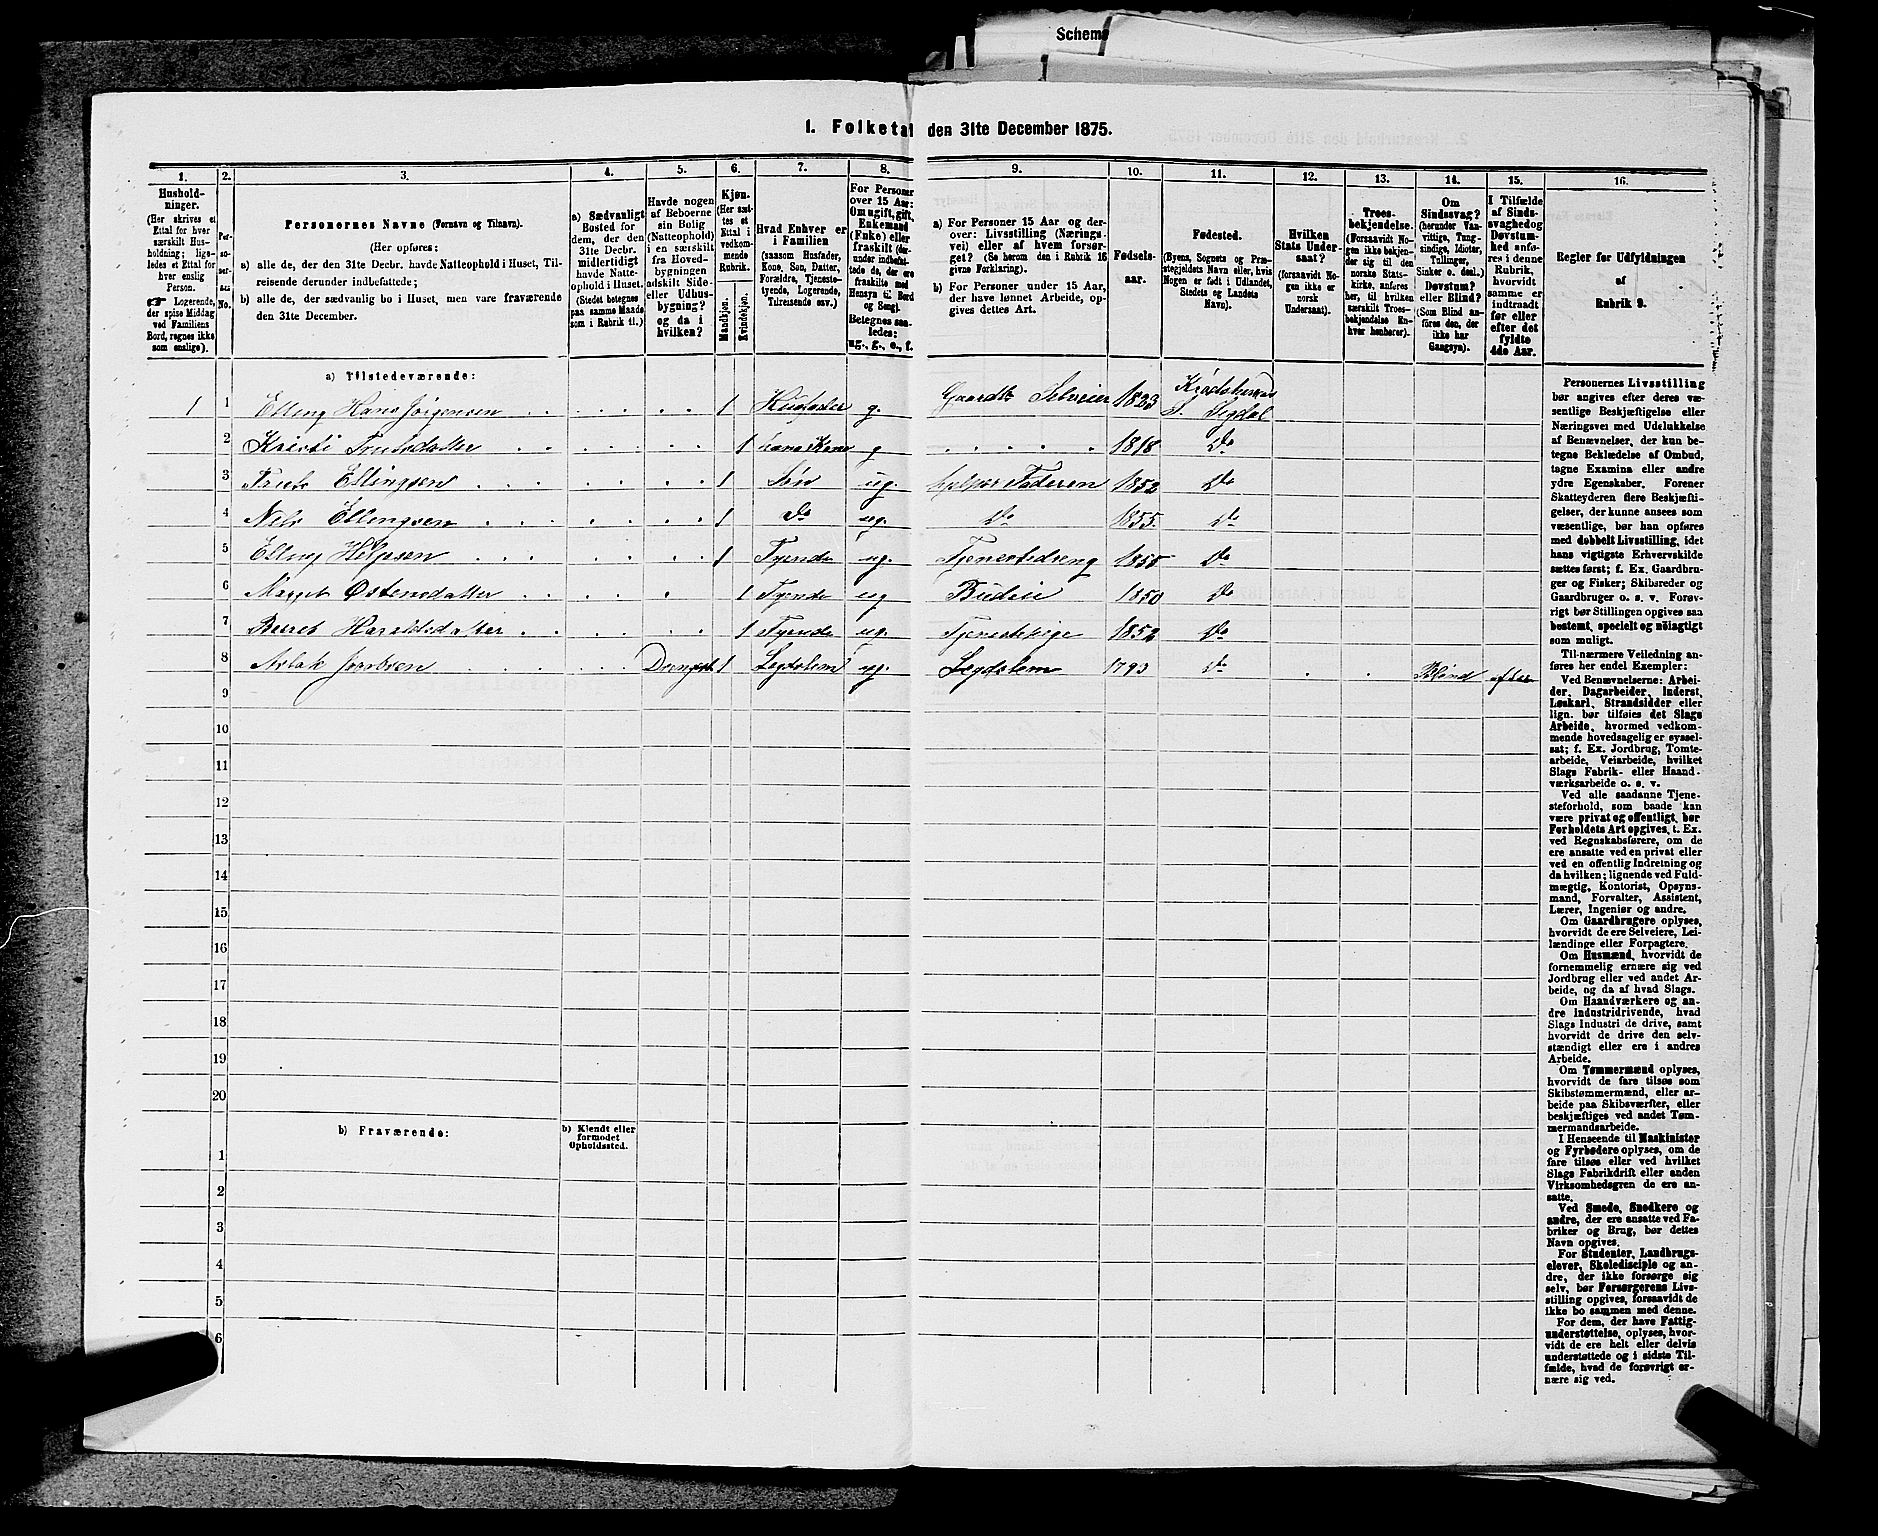 Schema
1. Folketal den 31te December 1875.
1. 2. 3. 4. 5. 6. 7. 8. 9. 10. 11. 12. 13. 14. 15. 16.
Hushold-
ninger.
(Her skrives et
Ettal for hver
særskilt Hus-
holdning; lige-
ledes et Ettal for
hver enslig
Person.
☞ Logerende,
der spise Middag
ved Familiens
Bord, regnes ikke
som enslige).
Per-
so-
ner-
nes
No.
Personernes Navne (Fornavn og Tilnavn).
(Her opføres:
a) alle de, der den 31te Decbr. havde Natteophold i Huset, Til-
reisende derunder indbefattede;
b) alle de, der sædvanlig bo i Huset, men vare fraværende
den 31te December.
a) Sædvanligt
Bosted for
dem, der den
31te Decbr.
midlertidigt
havde Natte-
ophold i Huset.
(Stedet betegnes
paa samme Maade
som i Rubrik 11.)
Havde nogen
af Beboerne
sin Bolig
(Natteophold)
i en særskilt
fra Hoved-
bygningen
adskilt Side-
eller Udhus-
bygning?
og da i
hvilken?
Kjøn.
(Her sæt-
tes et
Ettal i
vedkom-
mende
Rubrik.
Mandkjøn.
Kvindekjøn.
Hvad Enhver er
i Familien
(saasom Husfader,
Kone, Søn, Datter,
Forældre, Tjeneste-
tyende, Logerende,
Tilreisende osv.)
For Personer
over 15 Aar:
Om ugift, gift,
Enkemand
(Enke) eller
fraskilt (der-
under indbefat-
tede de, der ere
fraskilte med
Hensyn til Bord
og Seng).
Betegnes saa-
ledes:
ug., g., e., f.
a) For Personer 15 Aar og der-
over: Livsstilling (Nærings-
vei) eller af hvem forsør-
get? (Se herom den i Rubrik 16
givne Forklaring).
b) For Personer under 15 Aar,
der have lønnet Arbeide, op-
gives dettes Art.
Fødsels-
aar.
Fødested.
(Byens, Sognets og Præ-
stegjeldets Navn eller, hvis
Nogen er født i Udlandet,
Stedets og Landets
Navn).
Hvilken
Stats Under-
saat?
(forsaavidt No-
gen ikke er
norsk
Undersaat).
Troes-
bekjendelse.
(Forsaavidt No-
gen ikke bekjen-
der sig til den
norske Stats-
kirke, anføres
her, til hvilken
særskilt Troes-
bekjendelse En-
hver henhører).
Om
Sindssvag?
(herunder Van-
vittige, Tung-
sindige, Idioter,
Tullinger,
Sinker o. desl.)
Døvstum?
eller Blind?
(Som Blind an-
føres den, der
ikke har
Gangsyn).
I Tilfælde
af Sinds-
svaghed og
Døvstum-
hed anfø-
res i denne
Rubrik,
hvorvidt
samme er
indtraadt
før eller
efter det
fyldte
4de Aar.
Regler for Udfyldningen
af
Rubrik 9.
a) Tilstedeværende:
1 1 Elling Hans Jørgensen 1 Husfader g. Gaardb. Selveier 1823 Krødsherred S. Sigdal
2 Kristi Trulsdatter 1 hans Kone g 1818 Do
3 Truls Ellingsen 1 Søn ug. hjelper Faderen 1852 Do
4 Nels Ellingsen 1 Do ug. Do 1855. Do
5 Elling Helgesen 1 Tyende ug. Tjenestedreng 1858 Do
6 Margit Østensdatter 1 Tyende ug Budeie 1850 Do
7 Beret Haraldsdatter 1 Tyende ug. Tjenestepige 1852 Do
8 Aslak Jacobsen 1 Legdslem ug. Legdslem 1793 Do Blind efter
9
10
11
12
13
14
15
16
17
18
19
20
b) Fraværende:
b) Kjendt eller
formodet
Opholdssted.
1
2
3
4
5
6
Personernes Livsstilling
bør angives efter deres væ-
sentlige Beskjæftigelse eller
Næringsvei med Udelukkelse
af Benævnelser, der kun be-
tegne Beklædelse af Ombud,
tagne Examina eller andre
ydre Egenskaber. Forener
Skatteyderen flere Beskjæfti-
gelser, der kunne ansees som
væsentlige, bør han opføres
med dobbelt Livsstilling, idet
hans vigtigste Erhvervskilde
sættes først; f. Ex. Gaardbru-
ger og Fisker; Skibsreder og
Gaardbruger o. s. v. Forøv-
rigt bør Stillingen opgives saa
bestemt, specielt og nøiagtigt
som muligt.
Til nærmere Veiledning an-
føres her endel Exempler:
Ved Benævnelserne: Arbei-
der, Dagarbeider, Inderst,
Løskarl, Strandsidder eller
lign. bør tilføies det Slags
Arbeide, hvormed vedkom-
mende hovedsagelig er syssel-
sat; f. Ex. Jordbrug, Tomte-
arbeide, Veiarbeide, hvilket
Slags Fabrik- eller Haand-
værksarbeide o. s. v.
Ved alle saadanne Tjene-
steforhold, som baade kan
være privat og offentligt, bør
Forholdets Art opgives, t. Ex.
ved Regnskabsførere, om de
ere ansatte ved en privat eller
ved en offentlig Indretning og
da hvilken; lignende ved Fuld-
mægtig, Kontorist, Opsyns-
mand, Forvalter, Assistent,
Lærer, Ingeniør og andre.
Om Gaardbrugere oplyses,
hvorvidt de ere Selveiere, Lei-
lændinge eller Forpagtere.
Om Husmænd, hvorvidt de
fornemmelig ernære sig ved
Jordbrug eller ved andet Ar-
beide, og da af hvad Slags.
Om Haandværkere og an-
dre Industridrivende, hvad
Slags Industri de drive, samt
hvorvidt de drive den selv-
stændigt eller ere i andres
Arbeide.
Om Tømmermænd oplyses,
hvorvidt de fare tilsøs som
Skibstømmermænd, eller ar-
beide paa Skibsværfter, eller
beskjæftiges ved andet Tøm-
mermandsarbeide.
I Henseende til Maskinister
og Fyrbødere oplyses, om de
fare tilsøs eller ved hvilket
Slags Fabrikdrift eller anden
Virksomhedsgren de ere an-
satte.
Ved Smede, Snedkere og
andre, der ere ansatte ved Fa-
briker og Brug, bør dettes
Navn opgives.
For Studenter, Landbrugs-
elever, Skoledisciple og an-
dre, der ikke forsørge sig
selv, bør Forsørgerens Livs-
stilling opgives, forsaavidt de
ikke bo sammen med denne.
For dem, der have Fattig-
understøttelse, oplyses, hvor-
vidt de ere helt eller delvis
understøttede og i sidste Til-
fælde, hvad de forøvrigt er-
nære sig ved.